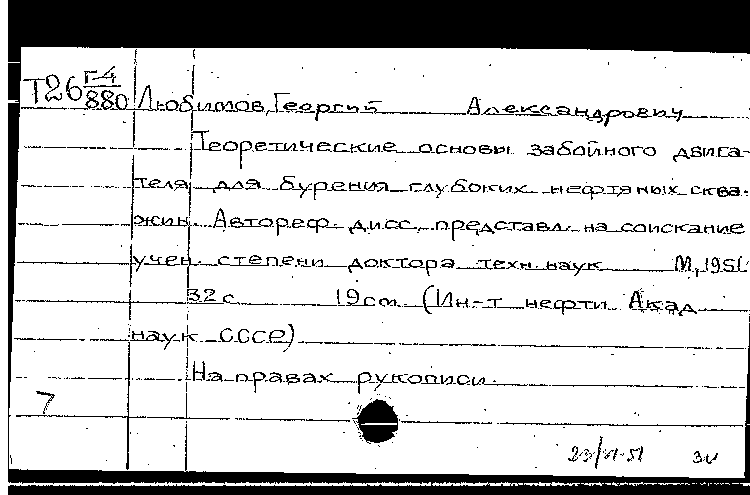 Т26 Г-4/880 Любимов, Георгий Александрович
Теоретические основы забойного двига-
теля для бурения глубоких нефтяных сква-
жин. Автореф. дисс., представл. на соискание
учен. степени доктора техн. наук М, 1951
32 с 19 см. (Ин-т нефти Акад
наук СССР)
На правах рукописи.
7
23/VI-51